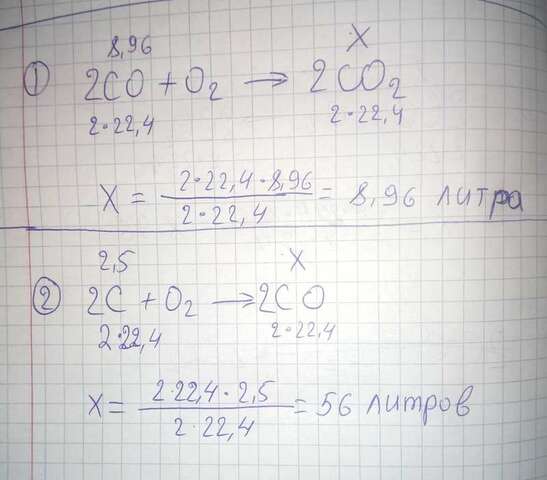 8,96 X
① 2CO + O₂ → 2CO₂
2·22,4 2·22,4
X = 2·22,4·8,96 / 2·22,4 = 8,96 литра
2,5 X
② 2C + O₂ → 2CO
2·22,4 2·22,4
X = 2·22,4·2,5 / 2·22,4 = 56 литров